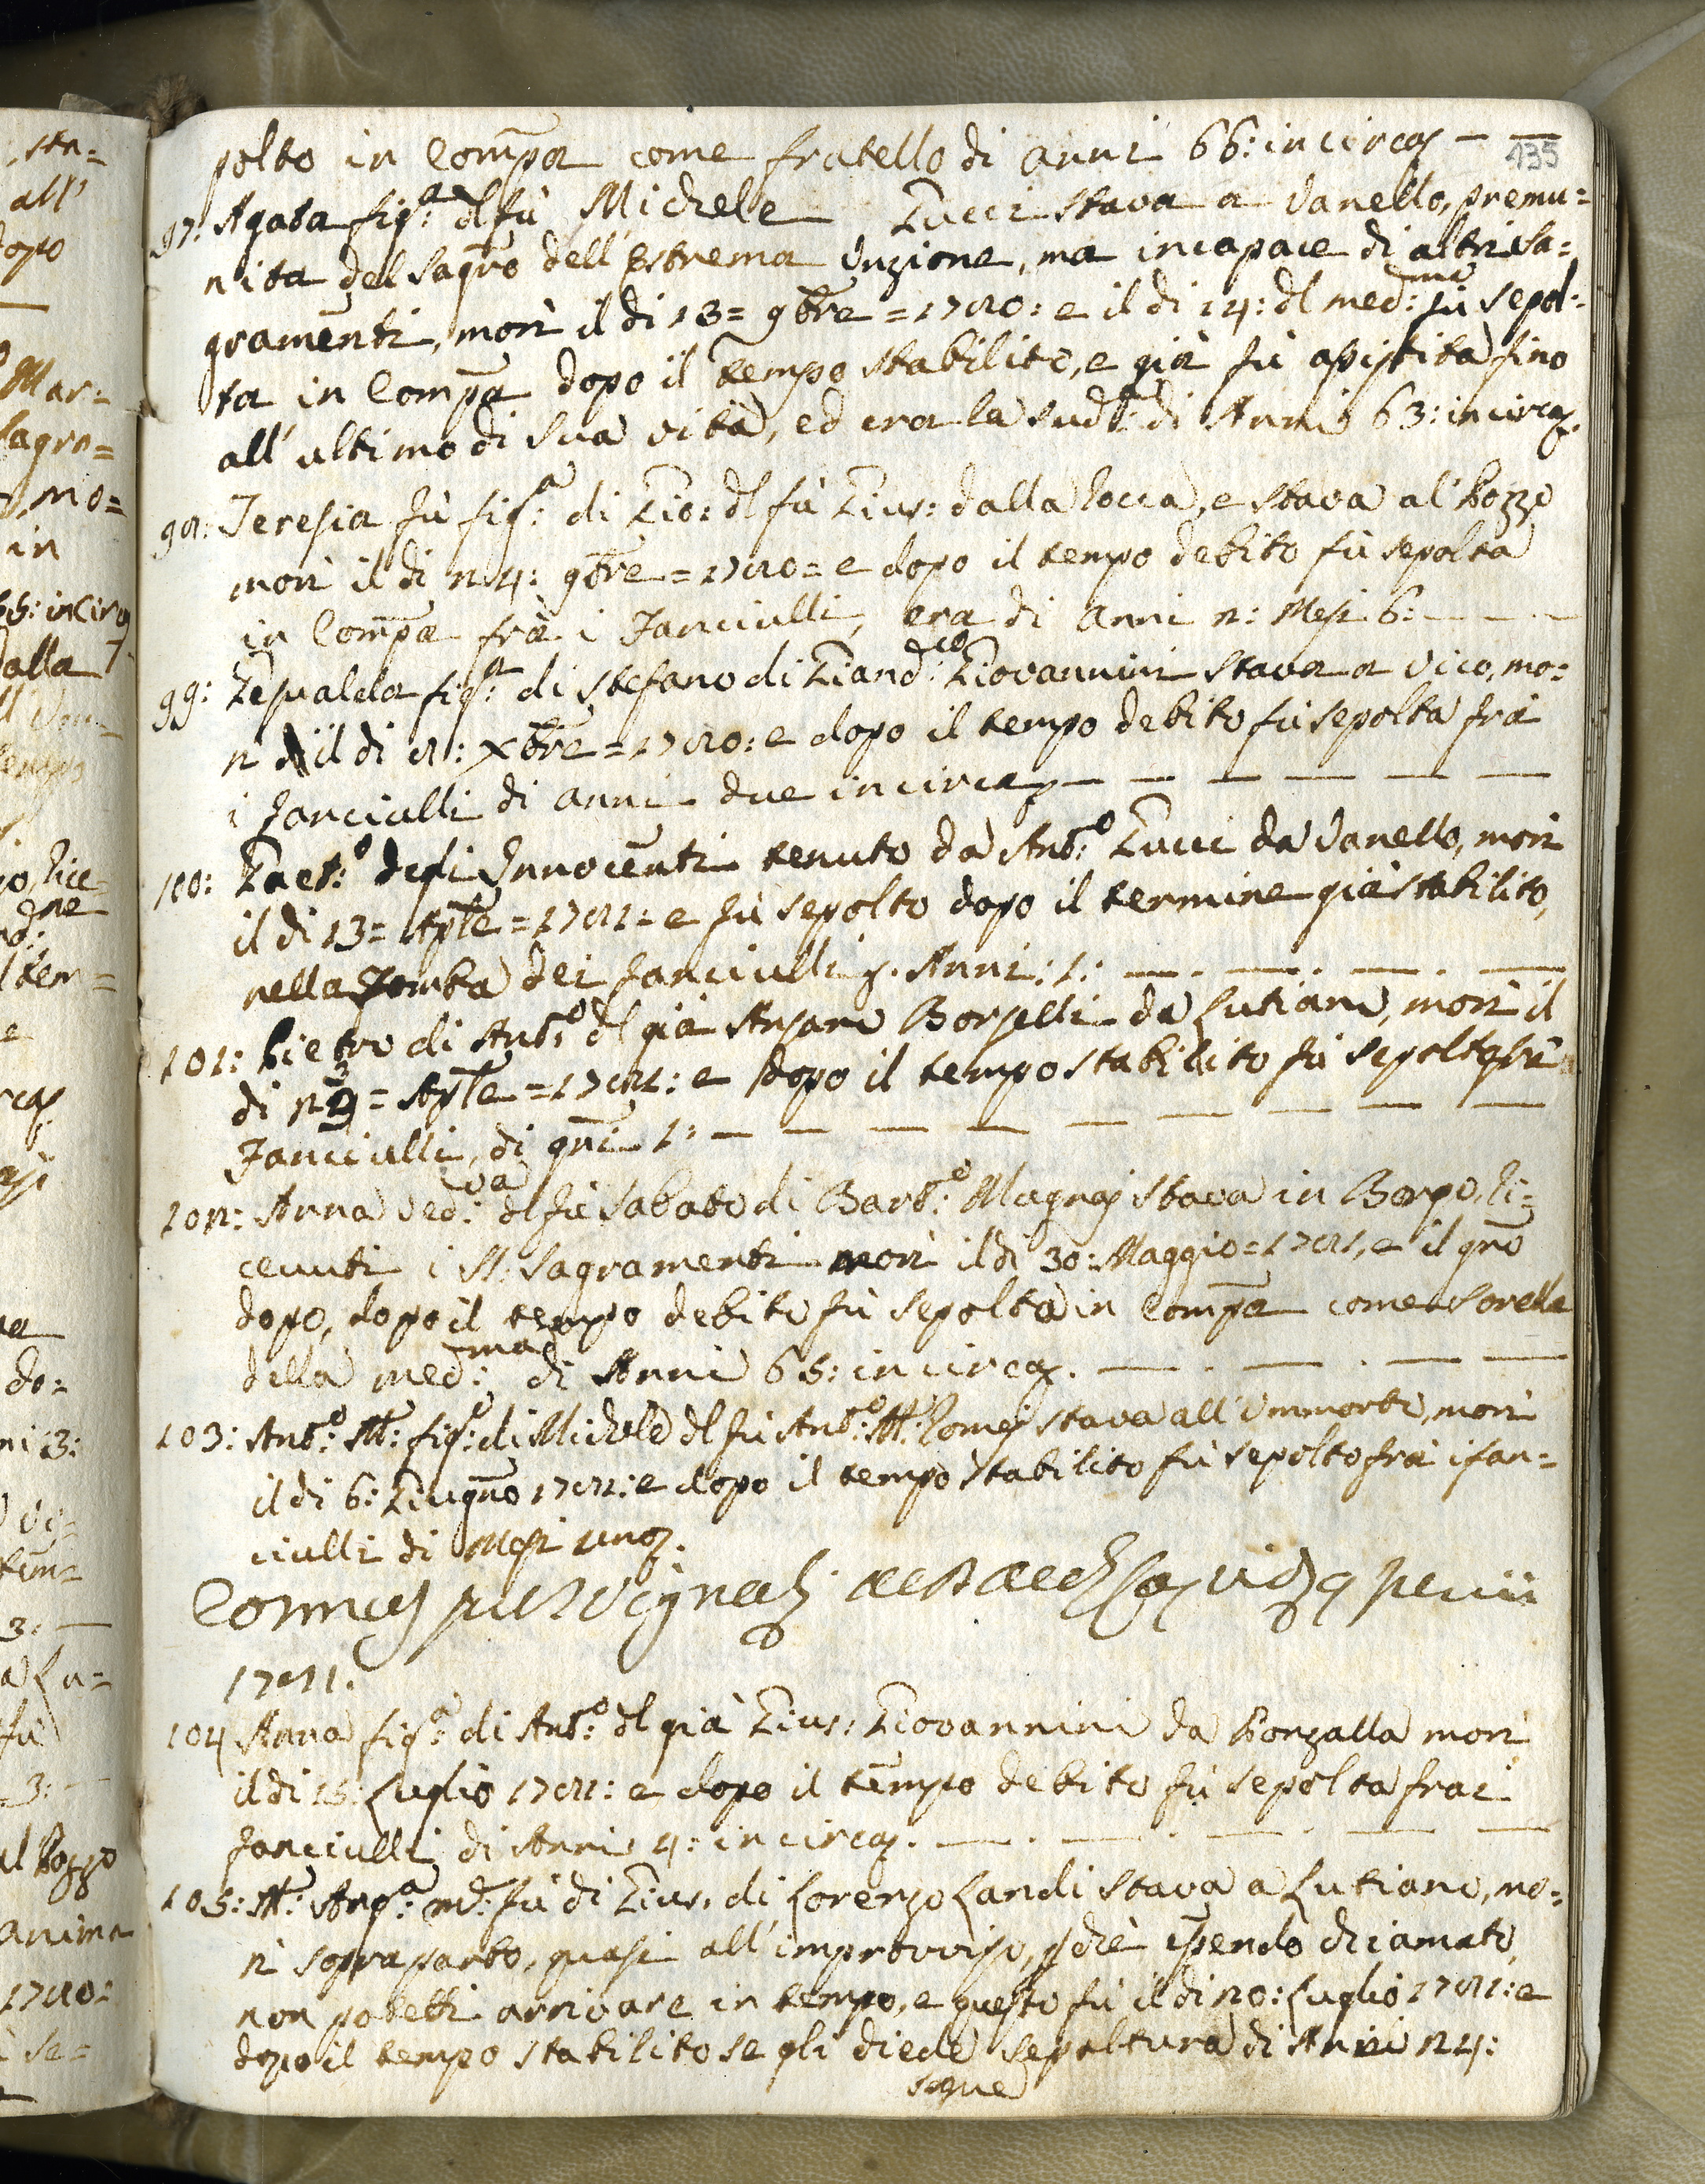 135
polto in Comp.a come fratello di anni 66: incirca —
97: Agata fig.a del fù Michele Lucci stava a Vanello, premu=
nita del sagro dell'Estrema Unzione, ma incapace di altri sa=
gramenti, morì il di 13= 9bre = 1780: e il di 14: del med:mo fù sepol=
ta in Comp.a dopo il tempo stabilito, e già fù assistita fino
all'ultimo di sua vita, ed era la sud.a di Anni 63: incirca.
98: Teresia fù fig:a di Gio: del fù Gius: dalla Rocca, e stava al Pozzo
morì il di 24: 9bre = 1780 = e dopo il tempo debito fù sepolta
in Comp.a frà i Fanciulli, era di anni 2: Mesi 6: — — —
99: Gesualda fig:a di Stefano di Giand:co Giovannini stava a Vico, mo=
rì il di 8: Xbre = 1780: e dopo il tempo debito fù sepolta frà
i fanciulli di anni due incirca — — — — — —
100: Gaet:o degl'Innocenti tenuto da Ant:o Lucci da Vanello, morì
il di 13= Aple = 1781= e fù sepolto dopo il termine già stabilito,
nella Tomba dei fanciulli Anni: 1: — . — . — . —
101: Pietro di Ant:o del già Ansano Borselli da Lutiano, morì il
di = Aple = 1781: e dopo il tempo stabilito fù sepolto frà
Fanciulli, di gni 1: — — — — — — —
102: Anna ved:va del fù Sabato di Bart:o Magnaj stava in Borgo, ri=
ceuuti i SS. Sagramenti morì il di 30: Maggio = 1781, e il gno
dopo, dopo il tempo debito fù sepolta in Comp.a come sorella
della med:ma di Anni 65: incirca. — . — . — —
103: Ant:o M: fig:o di Michele del fù Ant:o M: Romej stava all'Ummorto, morì
il di 6: Giugno 1781: e dopo il tempo stabilito fù sepolto frà i fan=
ciulli di Mesi uno.
1781.
104 Anna fig:a di Ant:o del già Gius: Giovannini da Ronzalla morì
il di 15: Luglio 1781: e dopo il tempo debito fù sepolta fra i
fanciulli di Anni 4: incirca. — . — . — . — —
105: M: Ang:a m: fù di Gius. di Lorenzo Landi stava a Lutiano, mo=
rì sopraparto, quasi all'improvviso, chiamato,
non potetti arrivare in tempo, e questo fù il di 20: Luglio 1781: e
dopo il tempo stabilito se gli diede sepoltura di Anni 24:
segue